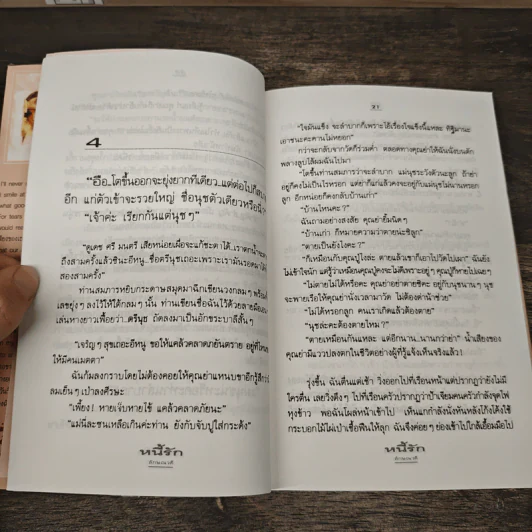 4
"ฮือ..โตขึ้นออกจะยุ่งยากทีเดียว..แต่ต่อไปก็
อีก แก่ตัวเข้าจะรวยใหญ่ ชื่อนุชตัวเดียวหรือนี่
"เจ้าค่ะ เรียกกันแต่นุชๆ"
"อุเดช ศรี มนตรี เสียหน่อยเผื่อจะแก้ชะตาได้..เราตก
ถึงสามครั้งแล้วชินะอีหนู..ชื่อดรีนุชเถอะเพราะเรามัน
สองสามครั้ง"
ท่านสมภารหยิบกระดาษสมุดมาฉีกเขียนวงกลมๆ พร้อม
เลขยุ่งๆ ลงไว้ให้ใต้กลมๆ นั้น ท่านเขียนชื่อฉันไว้ด้วยลายมือ
เล่นหางยาวเฟื้อยว่า..ดรีนุช ถัดลงมาเป็นอักขระบาลีสั้นๆ
"เจริญๆ สุขเถอะอีหนู ขอให้แคล้วคลาดภยันตราย อยู่ที่ไหน
ให้มีคนเมตตา"
ฉันก้มลงกราบโดยไม่ต้องคอยให้คุณย่าแหนบขาอีก รู้สึก
ลมเย็นๆ เป่าลงศีรษะ
"เพี้ยง! หายเจ็บหายไข้ แคล้วคลาดภัยนะ"
"แม่นี่ละซนเหลือเกินค่ะท่าน ยังกับจับปูใส่กระด้ง"
หนี้รัก
21
"ใจมันแข็ง จะลำบากก็เพราะไอ้เรื่องใจแข็งนี่แหละ ทิฐิมานะ
เอาชนะคะคานไม่หยอก"
กว่าจะกลับจากวัดก็ร่วมค่ำ ตลอดทางคุณย่าให้ฉันนั่งบนตัก
พลางลูบไล้ผมฉันไปมา
"โตขึ้นท่านสมภารว่าจะลำบาก แม่นุชระวังตัวนะลูก ถ้าย่า
อยู่ก็คงไม่เป็นไรหรอก แต่ย่าก็แก่แล้วคงจะอยู่กับแม่นุชไม่นานหรอก
ลูก อีกหน่อยก็คงกลับบ้านเก่า"
"บ้านไหนคะ?"
ฉันถามอย่างสงสัย คุณย่ายิ้มนิดๆ
"บ้านเก่า ก็หมายความว่าตายน่ะซิลูก"
"ตายเป็นยังไงคะ?"
"ก็เหมือนกับคุณปู่ไงล่ะ ตายแล้วเขาก็เอาไปวัดไปเผา" ฉันยัง
ไม่เข้าใจนัก แต่รู้ว่าเหมือนคุณปู่คงจะไม่ดีเพราะอยู่ๆ คุณปู่ก็หายไปเฉยๆ
"ไม่ตายไม่ได้หรือคะ คุณย่าอย่าตายซิคะ อยู่กับนุชนานๆ นุช
จะพายเรือให้คุณย่านั่งเวลามาวัด ไม่ต้องค่าน้ำช่วย"
"ไม่ได้หรอกลูก คนเราเกิดแล้วต้องตาย"
"นุชล่ะคะต้องตายไหม?"
"ตายเหมือนกันแหละ แต่อีกนาน..นานกว่าย่า" น้ำเสียงของ
คุณย่ามีแววปลงตกในชีวิตอย่างผู้ที่รู้แจ้งเห็นจริงแล้ว!
รุ่งขึ้น ฉันตื่นแต่เช้า วิ่งออกไปที่เรือนหน้าแต่ปรากฏว่ายังไม่มี
ใครตื่น เลยวิ่งตึงๆ ไปที่เรือนครัวปรากฏว่าป้าเจียมคนครัวกำลังจุดไฟ
หุงข้าว พอฉันโผล่หน้าเข้าไป เห็นแกกำลังนั่งหันหลังโก้งโค้งใช้
กระบอกไม้ไผ่เป่าเชื้อฟืนให้ลุก ฉันจึงค่อยๆ ย่องเข้าไปใกล้เอื้อมมือไป
หนี้รัก